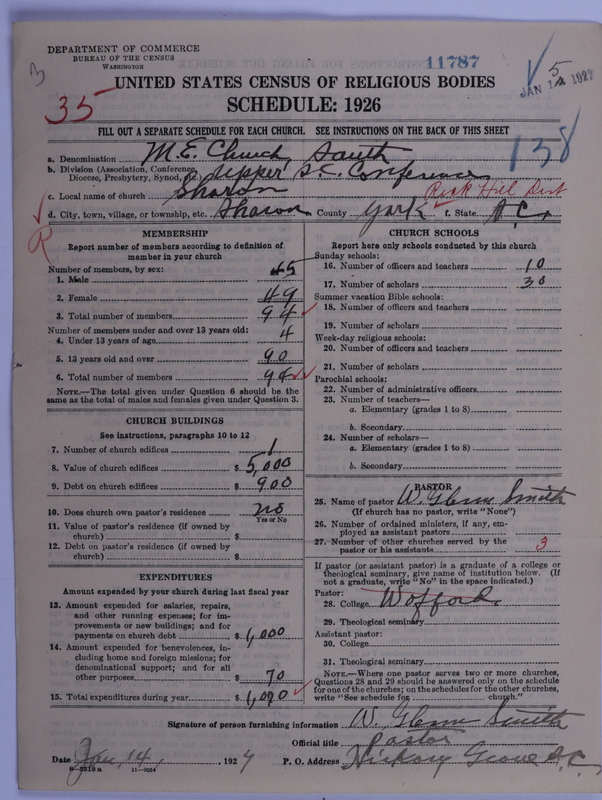 DEPARTMENT OF COMMERCE
BUREAU OF THE CENSUS
WASHINGTON
11787
JAN 1927
5
35
UNITED STATES CENSUS OF RELIGIOUS BODIES
SCHEDULE: 1926
FILL OUT A SEPARATE SCHEDULE FOR EACH CHURCH. SEE INSTRUCTIONS ON THE BACK OF THIS SHEET
138
a. Denomination M.E. Church, South
b. Division (Association, Conference, Diocese, Presbytery, Synod, etc.) Upper S.C. Conference
c. Local name of church Sharon Rock Hill Dist
d. City, town, village, or township, etc. Sharon County York f. State S.C.
R
MEMBERSHIP
Report number of members according to definition of
member in your church
Number of members, by sex:
1. Male 45
2. Female 49
3. Total number of members 94
Number of members under and over 13 years old:
4. Under 13 years of age 4
5. 13 years old and over 90
6. Total number of members 94
NOTE.—The total given under Question 6 should be
same as the total of males and females given under Question 3.
CHURCH BUILDINGS
See instructions, paragraphs 10 to 12
7. Number of church edifices 1
8. Value of church edifices $ 5,000
9. Debt on church edifices $ 900
10. Does church own pastor's residence no
Yes or No
11. Value of pastor's residence (if owned by
church) $
12. Debt on pastor's residence (if owned by
church) $
EXPENDITURES
Amount expended by your church during last fiscal year
13. Amount expended for salaries, repairs,
and other running expenses; for im-
provements or new buildings; and for
payments on church debt $ 1,000
14. Amount expended for benevolences, in-
cluding home and foreign missions; for
denominational support; and for all
other purposes $ 70
15. Total expenditures during year $ 1,070
CHURCH SCHOOLS
Report here only schools conducted by this church
Sunday schools:
16. Number of officers and teachers 10
17. Number of scholars 30
Summer vacation Bible schools:
18. Number of officers and teachers
19. Number of scholars
Week-day religious schools:
20. Number of officers and teachers
21. Number of scholars
Parochial schools:
22. Number of administrative officers
23. Number of teachers—
a. Elementary (grades 1 to 8)
b. Secondary
24. Number of scholars—
a. Elementary (grades 1 to 8)
b. Secondary
PASTOR
25. Name of pastor W. Glenn Smith
(If church has no pastor, write "None")
26. Number of ordained ministers, if any, em-
ployed as assistant pastors
27. Number of other churches served by the
pastor or his assistants 3
If pastor (or assistant pastor) is a graduate of a college or
theological seminary, give name of institution below. (If
not a graduate, write "No" in the space indicated.)
Pastor:
28. College Wofford
29. Theological seminary
Assistant pastor:
30. College
31. Theological seminary
NOTE.—Where one pastor serves two or more churches,
Questions 28 and 29 should be answered only on the schedule
for one of the churches; on the schedules for the other churches,
write "See schedule for church."
Signature of person furnishing information W. Glenn Smith
Official title Pastor
Date Jan. 14, 1927 P. O. Address Hickory Grove S.C.
8-5518a 11-9054